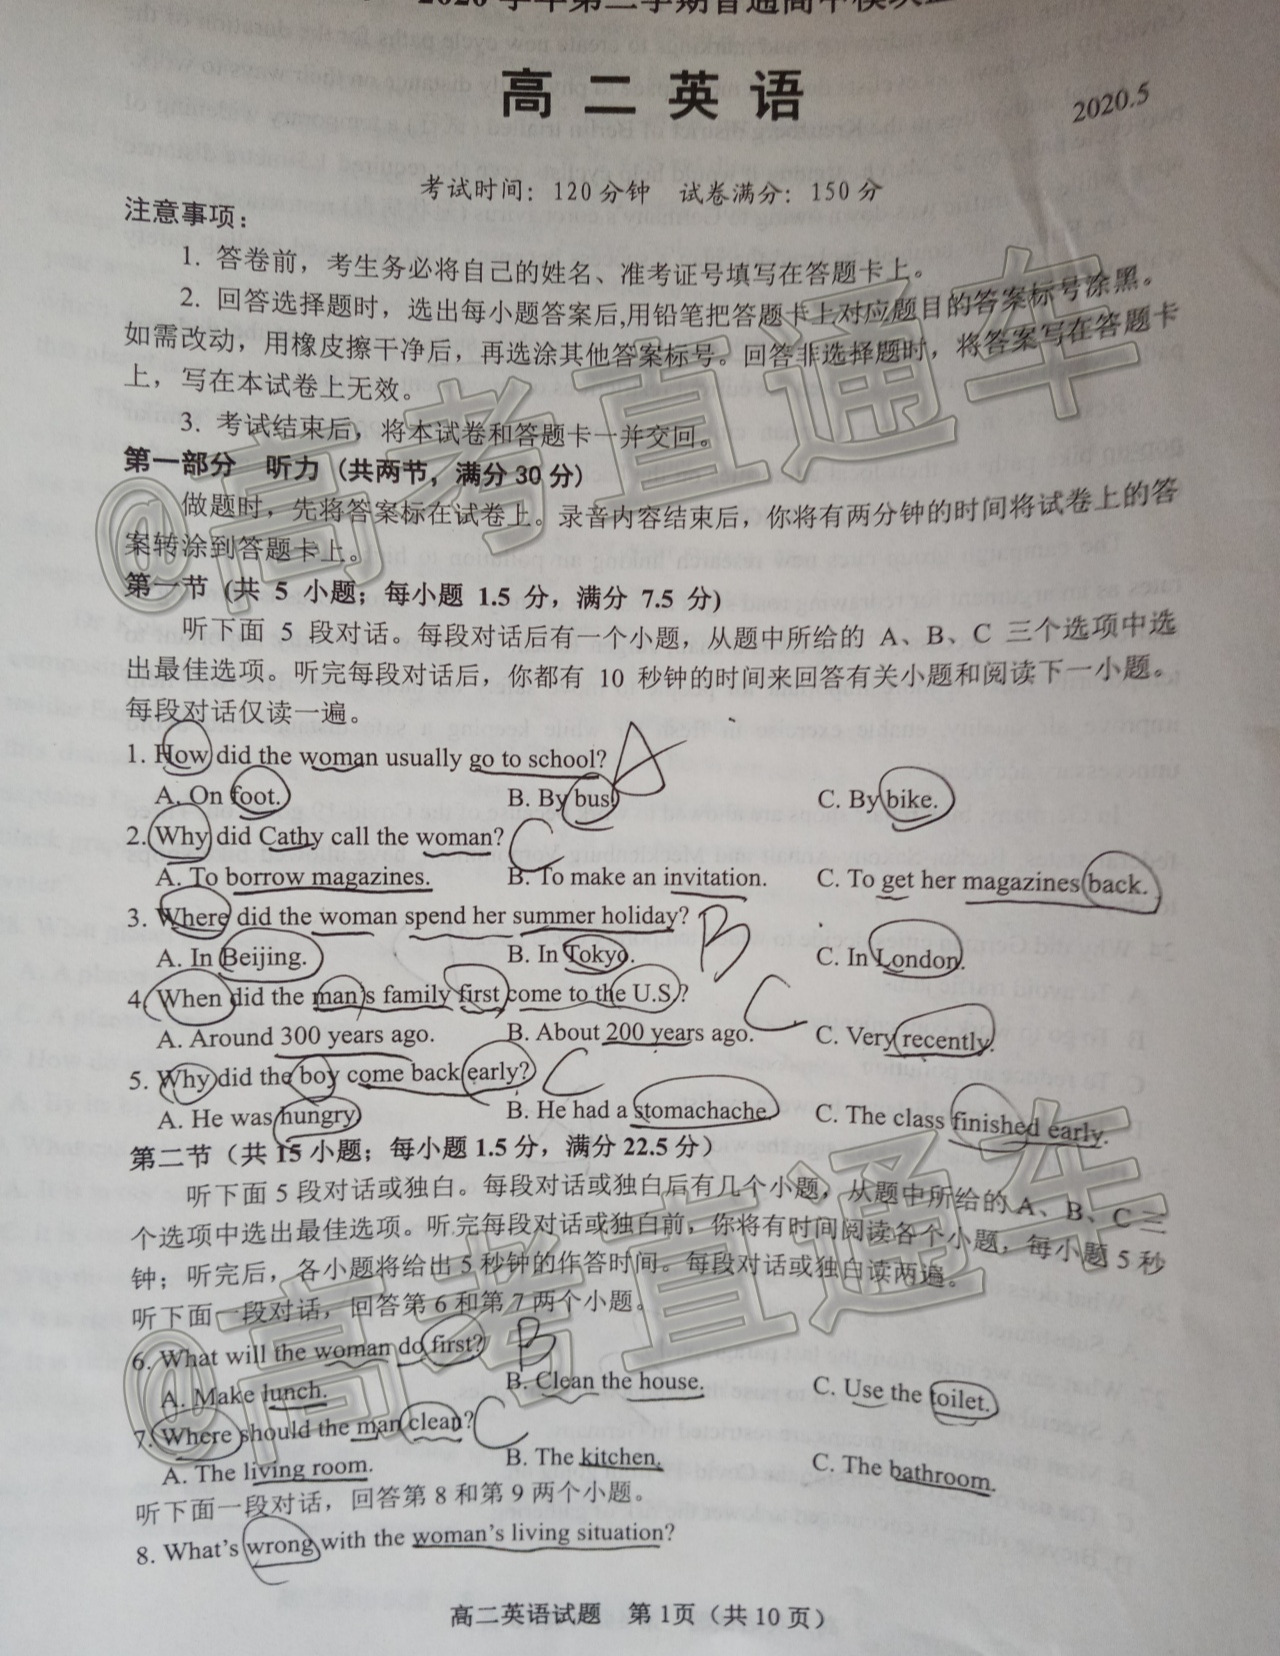 2020学年第二学期普通高中模块
高二英语
2020.5
考试时间：120分钟 试卷满分：150分
注意事项：
1. 答卷前，考生务必将自己的姓名、准考证号填写在答题卡上。
2. 回答选择题时，选出每小题答案后,用铅笔把答题卡上对应题目的答案标号涂黑。
如需改动，用橡皮擦干净后，再选涂其他答案标号。回答非选择题时，将答案写在答题卡
上，写在本试卷上无效。
3. 考试结束后，将本试卷和答题卡一并交回。
@高考直通车
第一部分 听力 (共两节，满分30分)
做题时，先将答案标在试卷上。录音内容结束后，你将有两分钟的时间将试卷上的答
案转涂到答题卡上。
第一节 (共 5 小题；每小题 1.5 分，满分 7.5 分)
听下面 5 段对话。每段对话后有一个小题，从题中所给的 A、B、C 三个选项中选
出最佳选项。听完每段对话后，你都有 10 秒钟的时间来回答有关小题和阅读下一小题。
每段对话仅读一遍。
1. How did the woman usually go to school? A
A. On foot. B. By bus. C. By bike.
2. Why did Cathy call the woman? C
A. To borrow magazines. B. To make an invitation. C. To get her magazines back.
3. Where did the woman spend her summer holiday? B
A. In Beijing. B. In Tokyo. C. In London.
4. When did the man's family first come to the U.S.? C
A. Around 300 years ago. B. About 200 years ago. C. Very recently.
5. Why did the boy come back early? C
A. He was hungry. B. He had a stomachache. C. The class finished early.
第二节（共 15 小题；每小题 1.5 分，满分 22.5 分）
听下面 5 段对话或独白。每段对话或独白后有几个小题，从题中所给的 A、B、C 三
个选项中选出最佳选项。听完每段对话或独白前，你将有时间阅读各个小题，每小题 5 秒
钟；听完后，各小题将给出 5 秒钟的作答时间。每段对话或独白读两遍。
@高考直通车
听下面一段对话，回答第 6 和第 7 两个小题。
6. What will the woman do first? B
A. Make lunch. B. Clean the house. C. Use the toilet.
7. Where should the man clean? C
A. The living room. B. The kitchen. C. The bathroom.
听下面一段对话，回答第 8 和第 9 两个小题。
8. What's wrong with the woman's living situation?
高二英语试题 第 1页（共 10 页）